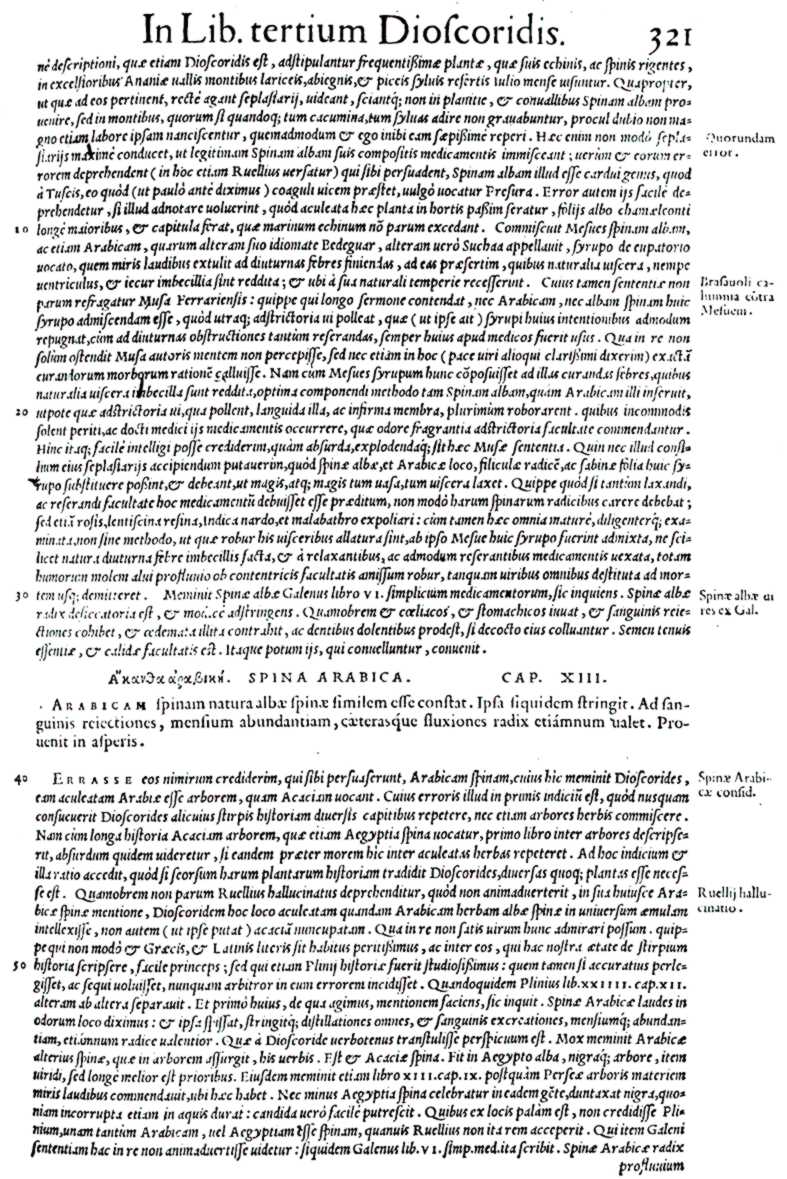 In Lib. tertium Dioſcoridis. 321
nè deſcriptioni, quæ etiam Dioſcoridis eſt, adſtipulantur frequentißimæ plantæ, quæ ſuis echinis, ac ſpinis rigentes,
in excelſioribus Ananiæ uallis montibus lariceis, abiegnis, & piceis ſyluis refertis Iulio menſe uiſuntur. Quapropter,
ut quæ ad eos pertinent, rectè agant ſeplaſiarij, uideant, ſciantq; non in planitie, & conuallibus Spinam albam pro=
uenire, ſed in montibus, quorum ſi quandoq; tum cacumina, tum ſyluas adire non grauabuntur, procul dubio non ma=
gno etiam labore ipſam nanciſcentur, quemadmodum & ego inibi eam ſæpißimè reperi. Hæc enim non modò ſepla=
Quorundam
ſiarijs maximè conducet, ut legitimam Spinam albam ſuis compoſitis medicamentis immiſceant; uerùm & eorum er=
error.
rorem deprehendent (in hoc etiam Ruellius uerſatur) qui ſibi perſuadent, Spinam albam illud eſſe cardui genus, quod
à Tuſcis, eo quòd (ut paulò antè diximus) coaguli uicem præſtet, uulgò uocatur Preſura. Error autem ijs facilè de=
prehendetur, ſi illud adnotare uoluerint, quòd aculeata hæc planta in hortis paßim ſeratur, folijs albo chamæleonti
10 longè maioribus, & capitula ferat, quæ marinum echinum nõ parum excedant. Commiſcuit Meſues ſpinam albam,
ac etiam Arabicam, quarum alteram ſuo idiomate Bedeguar, alteram uerò Suchaa appellauit, ſyrupo de eupatorio
uocato, quem miris laudibus extulit ad diuturnas febres finiendas, ad eas præſertim, quibus naturalia uiſcera, nempe
uentriculus, & iecur imbecillia ſint reddita; & ubi à ſua naturali temperie receſſerunt. Cuius tamen ſententiæ non
Braſauoli ca-
parum refragatur Muſa Ferrarienſis: quippe qui longo ſermone contendat, nec Arabicam, nec albam ſpinam huic
lumnia cõtra
ſyrupo admiſcendam eſſe, quòd utraq; adſtrictoria ui polleat, quæ (ut ipſe ait) ſyrupi huius intentionibus admodum
Meſuem.
repugnat, cùm ad diuturnas obſtructiones tantùm reſerandas, ſemper huius apud medicos fuerit uſus. Qua in re non
ſolùm oſtendit Muſa autoris mentem non percepiſſe, ſed nec etiam in hoc (pace uiri alioqui clarißimi dixerim) exactã
curandorum morborum rationẽ calluiſſe. Nam cùm Meſues ſyrupum hunc cõpoſuiſſet ad illas curandas febres, quibus
naturalia uiſcera imbecilla ſunt reddita, optima componendi methodo tam Spinam albam, quàm Arabicam illi inſeruit,
20 utpote quæ adſtrictoria ui, qua pollent, languida illa, ac infirma membra, plurimùm roborarent. quibus incommodis
ſolent periti, ac docti medici ijs medicamentis occurrere, quæ odore fragrantia adſtrictoria facultate commendantur.
Hinc itaq; facilè intelligi poſſe crediderim, quàm abſurda, explodendaq; ſit hæc Muſæ ſententia. Quin nec illud conſi=
lium eius ſeplaſiarijs accipiendum putauerim, quòd ſpinæ albæ, et Arabicæ loco, filiculæ radicẽ, ac ſabinæ folia huic ſy=
rupo ſubſtituere poßint, & debeant, ut magis, atq; magis tum uaſa, tum uiſcera laxet. Quippe quòd ſi tantùm laxandi,
ac reſerandi facultate hoc medicamentũ debuiſſet eſſe præditum, non modò harum ſpinarum radicibus carere debebat;
ſed etiã roſis, lentiſcina reſina, Indica nardo, et malabathro expoliari: cùm tamen hæc omnia maturè, diligenterq; exa=
minata, non ſine methodo, ut quæ robur his uiſceribus allatura ſint, ab ipſo Meſue huic ſyrupo fuerint admixta, ne ſci=
licet natura diuturna febre imbecillis facta, & à relaxantibus, ac admodum reſerantibus medicamentis uexata, totam
humorum molem alui profluuio ob contentricis facultatis amiſſum robur, tanquam uiribus omnibus deſtituta ad mor=
30 tem uſq; demitteret. Meminit Spinæ albæ Galenus libro VI. ſimplicium medicamentorum, ſic inquiens. Spinæ albæ
Spinæ albæ ui
radix deſiccatoria eſt, & modicè adſtringens. Quamobrem & cœliacos, & ſtomachicos iuuat, & ſanguinis reie=
res ex Gal.
ctiones cohibet, & œdemata illita contrahit, ac dentibus dolentibus prodeſt, ſi decocto eius colluantur. Semen tenuis
eſſentiæ, & calidæ facultatis eſt. Itaque potum ijs, qui conuelluntur, conuenit.
Ἄκανθα ἀραβική. SPINA ARABICA. CAP. XIII.
ARABICAM ſpinam natura albæ ſpinæ ſimilem eſſe conſtat. Ipſa ſiquidem ſtringit. Ad ſan-
guinis reiectiones, menſium abundantiam, cæterasque fluxiones radix etiámnum ualet. Pro-
uenit in aſperis.
40 ERRASSE eos nimirum crediderim, qui ſibi perſuaſerunt, Arabicam ſpinam, cuius hic meminit Dioſcorides,
Spinæ Arabi-
eam aculeatam Arabiæ eſſe arborem, quam Acaciam uocant. Cuius erroris illud in primis indiciũ eſt, quòd nuſquam
cæ conſid.
conſueuerit Dioſcorides alicuius ſtirpis hiſtoriam diuerſis capitibus repetere, nec etiam arbores herbis commiſcere.
Nam cùm longa hiſtoria Acaciam arborem, quæ etiam Aegyptia ſpina uocatur, primo libro inter arbores deſcripſe=
rit, abſurdum quidem uideretur, ſi eandem præter morem hic inter aculeatas herbas repeteret. Ad hoc indicium &
illa ratio accedit, quòd ſi ſeorſum harum plantarum hiſtoriam tradidit Dioſcorides, diuerſas quoq; plantas eſſe neceſ=
ſe eſt. Quamobrem non parum Ruellius hallucinatus deprehenditur, quòd non animaduerterit, in ſua huiuſce Ara=
Ruellij hallu-
bicæ ſpinæ mentione, Dioſcoridem hoc loco aculeatam quandam Arabicam herbam albæ ſpinæ in uniuerſum æmulam
cinatio.
intellexiſſe, non autem (ut ipſe putat) acaciã nuncupatam. Qua in re non ſatis uirum hunc admirari poſſum. quip=
pe qui non modò & Græcis, & Latinis literis ſit habitus peritißimus, ac inter eos, qui hac noſtra ætate de ſtirpium
50 hiſtoria ſcripſere, facilè princeps; ſed qui etiam Plinij hiſtoriæ fuerit ſtudioſißimus: quem tamen ſi accuratius perle=
giſſet, ac ſequi uoluiſſet, nunquam arbitror in eum errorem incidiſſet. Quandoquidem Plinius lib. XXIIII. cap. XII.
alteram ab altera ſeparauit. Et primò huius, de qua agimus, mentionem faciens, ſic inquit. Spinæ Arabicæ laudes in
odorum loco diximus: & ipſa ſpiſſat, ſtringitq; diſtillationes omnes, & ſanguinis excreationes, menſiumq; abundan=
tiam, etiámnum radice ualentior. Quæ à Dioſcoride uerbotenus tranſtuliſſe perſpicuum eſt. Mox meminit Arabicæ
alterius ſpinæ, quæ in arborem aſſurgit, his uerbis. Eſt & Acaciæ ſpina. Fit in Aegypto alba, nigraq; arbore, item
uiridi, ſed longè melior eſt prioribus. Eiuſdem meminit etiam libro XIII. cap. IX. poſtquàm Perſeæ arboris materiem
miris laudibus commendauit, ubi hæc habet. Nec minus Aegyptia ſpina celebratur in eadem gẽte, duntaxat nigra, quo=
niam incorrupta etiam in aquis durat: candida uerò facilè putreſcit. Quibus ex locis palàm eſt, non credidiſſe Pli=
nium, unam tantùm Arabicam, uel Aegyptiam eſſe ſpinam, quanuis Ruellius non ita rem acceperit. Qui item Galeni
ſententiam hac in re non animaduertiſſe uidetur: ſiquidem Galenus lib. VI. ſimp. med. ita ſcribit. Spinæ Arabicæ radix
profluuium